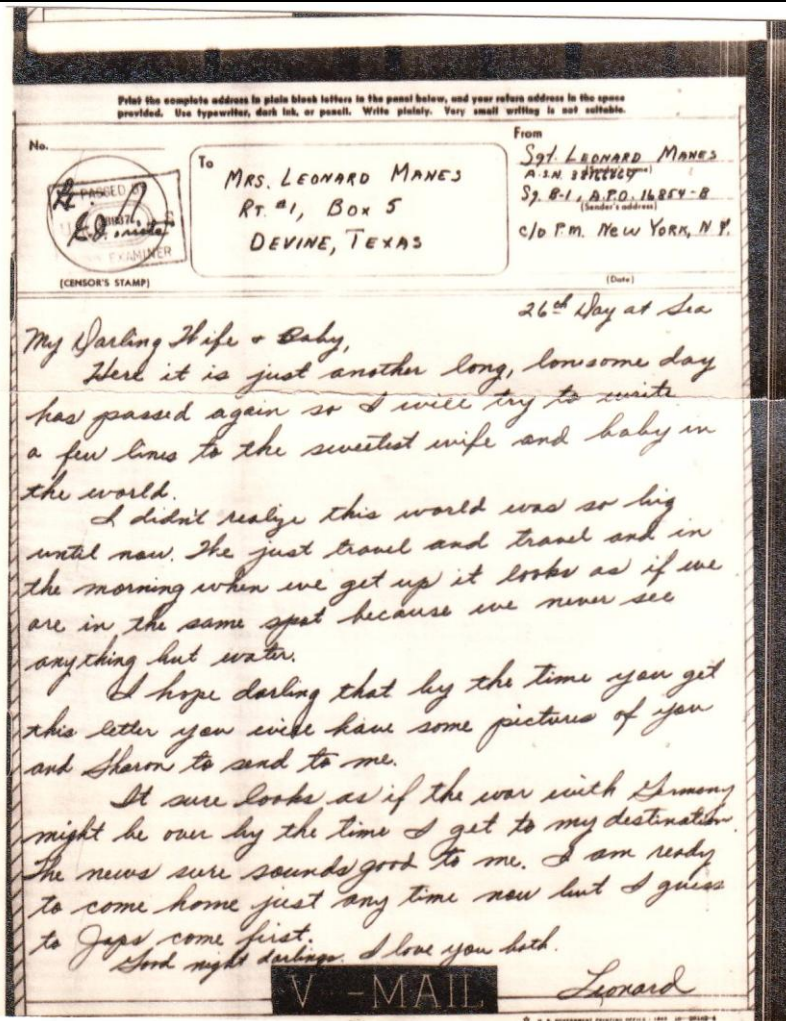 Print the complete address in plain block letters in the panel below, and your return address in the space
provided. Use typewriter, dark ink, or pencil. Write plainly. Very small writing is not suitable.
No.
PASSED BY
EXAMINER
(CENSOR'S STAMP)
To
MRS. LEONARD MANES
RT. #1, BOX 5
DEVINE, TEXAS
From
Sgt. LEONARD MANES
A.S.N.
Sq. B-1, A.P.O. 16854-B
(Sender's address)
c/o P.M. NEW YORK, N.Y.
(Date)
26th Day at Sea
My Darling Wife & Baby,
Here it is just another long, lonesome day
has passed again so I will try to write
a few lines to the sweetest wife and baby in
the world.
I didn't realize this world was so big
until now. We just travel and travel and in
the morning when we get up it looks as if we
are in the same spot because we never see
anything but water.
I hope darling that by the time you get
this letter you will have some pictures of you
and Sharon to send to me.
It sure looks as if the war with Germany
might be over by the time I get to my destination.
The news sure sounds good to me. I am ready
to come home just any time now but I guess
to Japs come first.
Good night darlings. I love you both.
Leonard
V-MAIL